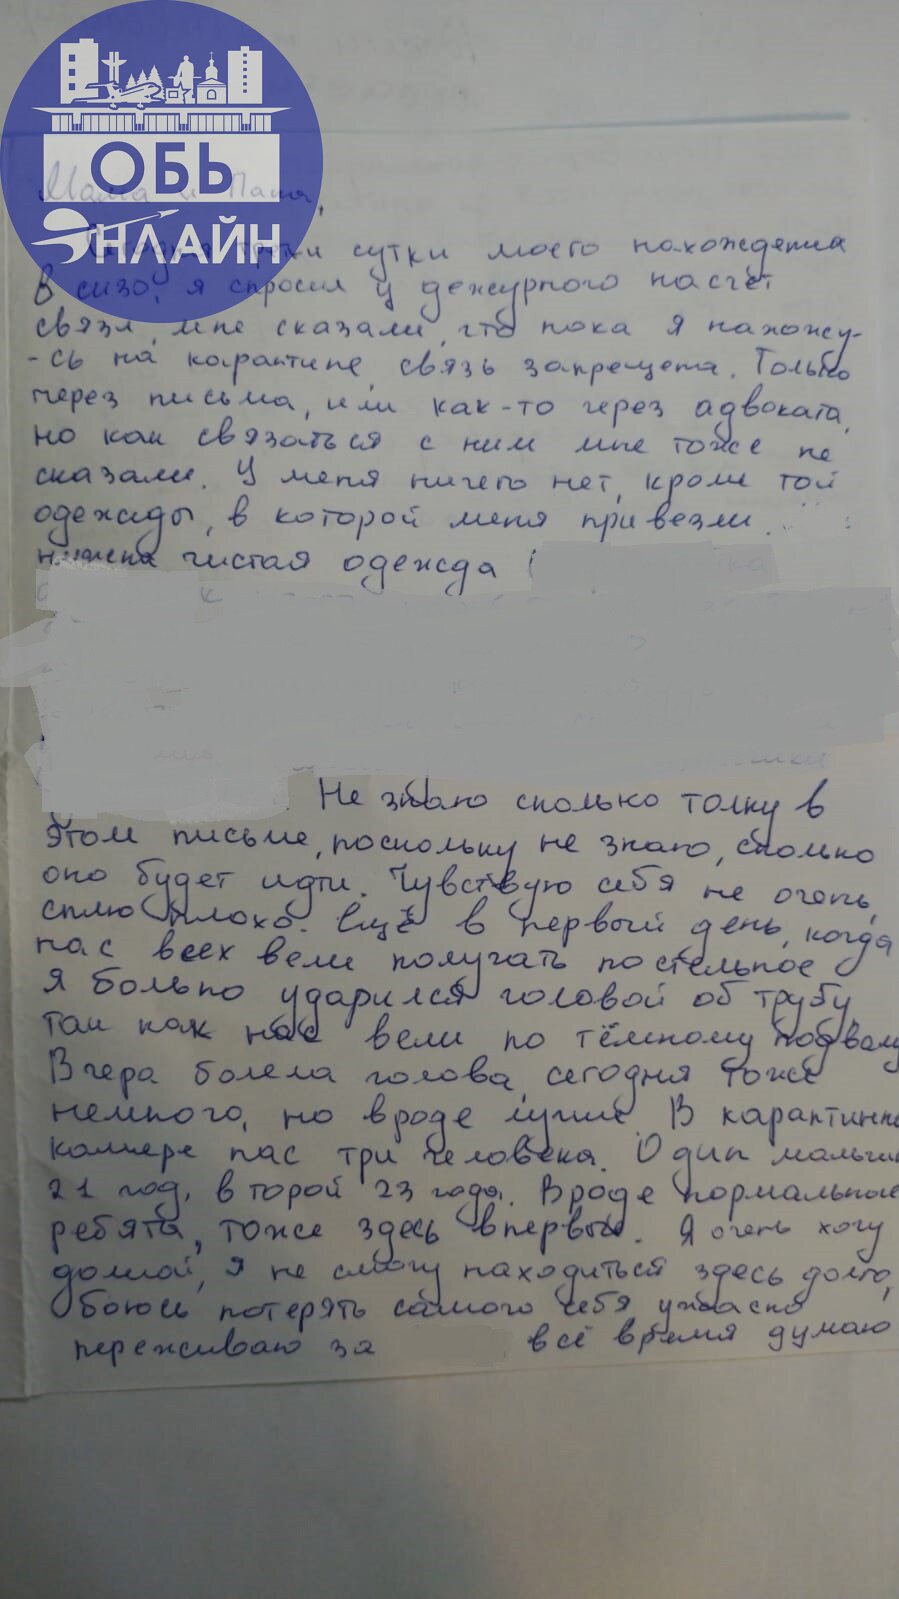 ОБЬ
ОНЛАЙН
Мама и Папа,
Сегодня третьи сутки моего нахождения
в сизо, я спросил у дежурного насчёт
связи, мне сказали, что пока я нахожу-
-сь на карантине, связь запрещена. Только
через письма, или как-то через адвоката,
но как связаться с ним мне тоже не
сказали. У меня ничего нет, кроме той
одежды, в которой меня привезли.
нужна чистая одежда
Не знаю сколько толку в
этом письме, поскольку не знаю, сколько
оно будет идти. Чувствую себя не очень,
сплю плохо. Ещё в первый день, когда
нас всех вели получать постельное
я больно ударился головой об трубу,
так как нас вели по тёмному подвалу
Вчера болела голова, сегодня тоже
немного, но вроде лучше. В карантинно
камере нас три человека. Один мальчик
21 год, второй 23 года. Вроде нормальные
ребята, тоже здесь впервые. Я очень хочу
домой, я не смогу находиться здесь долго,
боюсь потерять самого себя ужасно
переживаю за всё время думаю